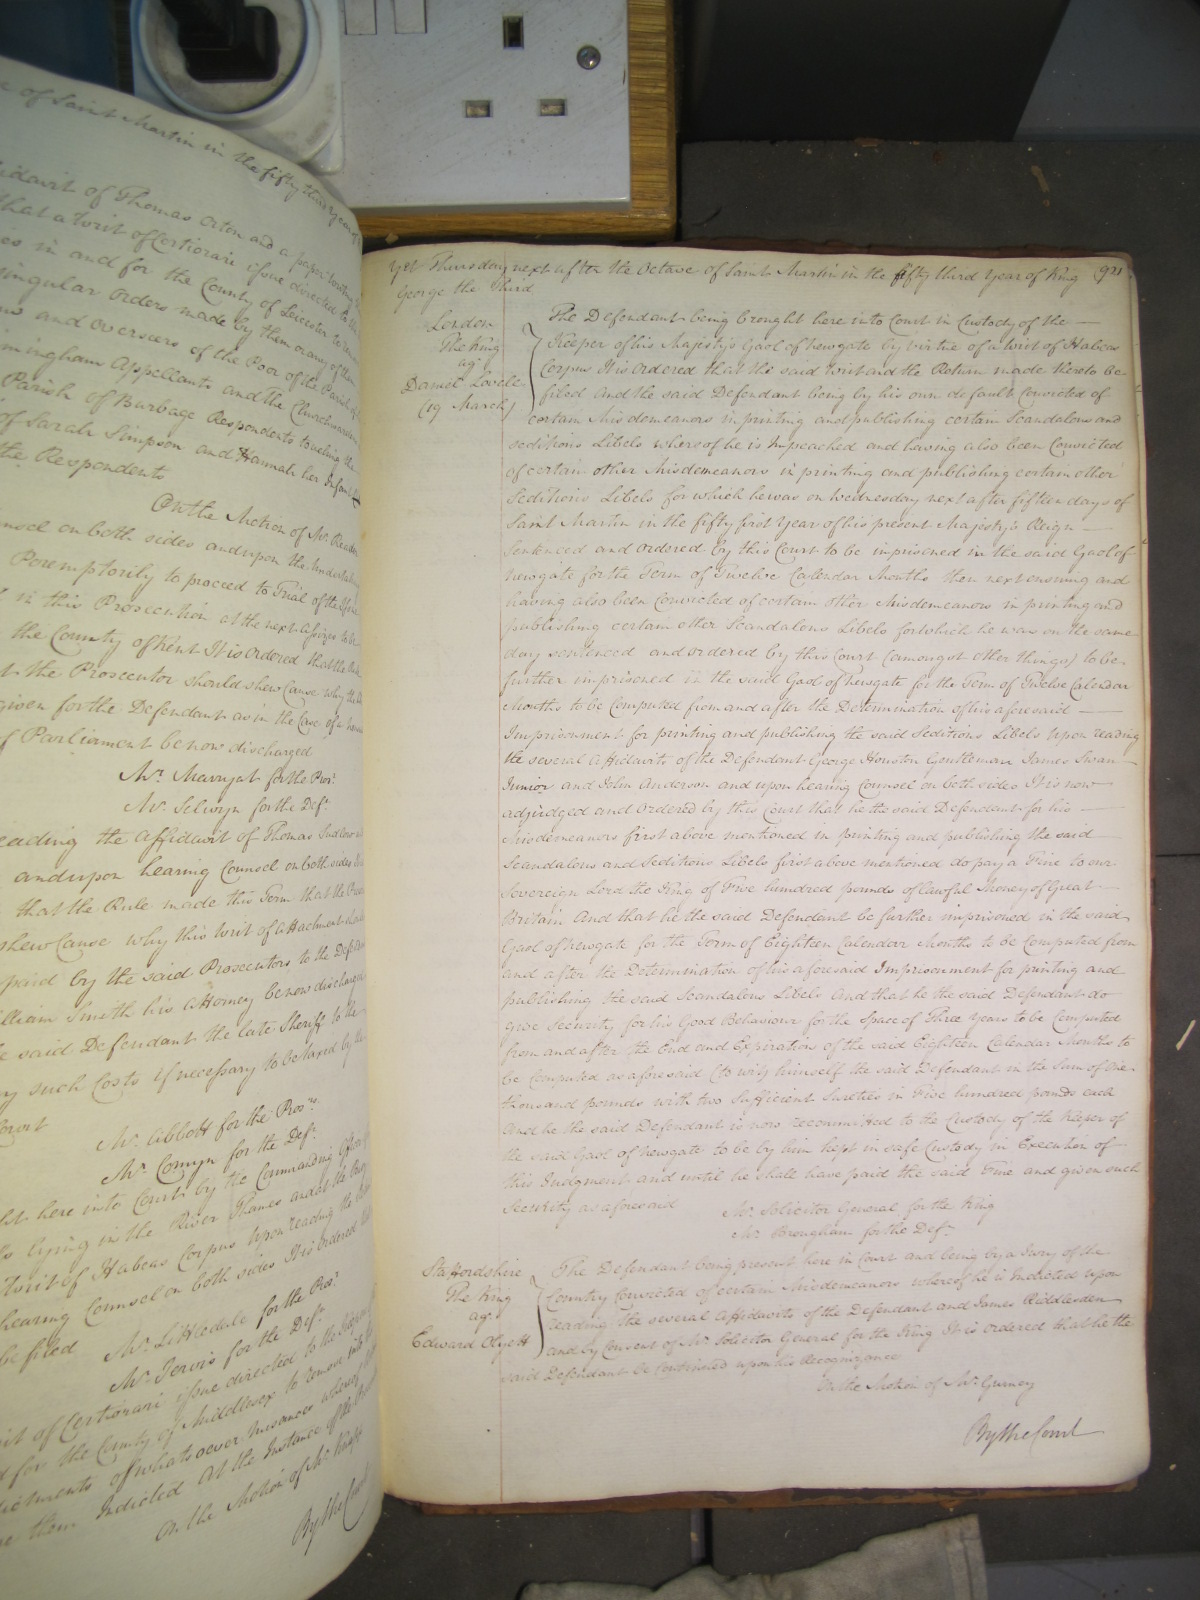 of Saint Martin in the fifty third Year of
Affidavit of Thomas Orton and a paper
that a Writ of Certiorari issue directed to the
in and for the County of Leicester to
singular Orders made by them or any of them
and Overseers of the Poor of the Parish of
Appellants and the Churchwardens
Parish of Burbage Respondents touching the
of Sarah Simpson and Hannah her Infant
the Respondents
On the Motion of Mr. Reader
Counsel on both sides and upon the
Peremptorily to proceed to Trial of the
in this Prosecution at the next Assizes to be
the County of Kent It is Ordered that the Rule
the Prosecutor should shew Cause why the
given for the Defendant as in the Case of a
of Parliament be now discharged
Mr. Marryat for the Pros.r
Mr. Selwyn for the Def.t
reading the Affidavit of Thomas
and upon hearing Counsel on both sides
that the Rule made this Term that the
shew Cause why this Writ of Attachment
paid by the said Prosecutors to the
William Smith his Attorney be now discharged
said Defendant the late Sheriff to the
such Costs if necessary to be taxed by the
Court
Mr. Abbott for the Pros.rs
Mr. Comyn for the Def.t
here into Court by the Commanding Officer
lying in the River Thames and at the
Writ of Habeas Corpus upon reading the
hearing Counsel on both sides It is Ordered
be filed
Mr. Littledale for the Pros.r
Mr. Jervis for the Def.t
Writ of Certiorari issue directed to the
for the County of Middlesex to remove into
Indictments of whatsoever Nusances whereof
them Indicted At the Instance of the
On the Motion of Mr. Knapp
By the Court
Yet Thursday next after the Octave of Saint Martin in the fifty third Year of King 921
George the Third
London
The King
ag.t
Daniel Lovell
(19 March)
The Defendant being brought here into Court in Custody of the
Keeper of his Majesty's Gaol of Newgate by virtue of a Writ of Habeas
Corpus It is ordered that the said Writ and the Return made thereto be
filed And the said Defendant being by his own default Convicted of
certain Misdemeanors in printing and publishing certain Scandalous and
seditious Libels whereof he is Impeached and having also been Convicted
of certain other Misdemeanors in printing and publishing certain other
Seditious Libels for which he was on Wednesday next after fifteen days of
Saint Martin in the fifty first Year of his present Majesty's Reign
Sentenced and Ordered by this Court to be imprisoned in the said Gaol of
Newgate for the Term of Twelve Calendar Months then next ensuing and
having also been Convicted of certain other Misdemeanors in printing and
publishing certain other Scandalous Libels for which he was on the same
day sentenced and ordered by this Court (amongst other things) to be
further imprisoned in the said Gaol of Newgate for the Term of Twelve Calendar
Months to be Computed from and after the Determination of his aforesaid
Imprisonment for printing and publishing the said Seditious Libels Upon reading
the several Affidavits of the Defendant George Houston Gentleman James Swan
Junior and John Anderson and upon hearing Counsel on both sides It is now
adjudged and Ordered by this Court that he the said Defendant for his
Misdemeanors first above mentioned in printing and publishing the said
Scandalous and Seditious Libels first above mentioned do pay a Fine to our
Sovereign Lord the King of Five hundred pounds of lawful Money of Great
Britain And that he the said Defendant be further imprisoned in the said
Gaol of Newgate for the Term of Eighteen Calendar Months to be Computed from
and after the Determination of his aforesaid Imprisonment for printing and
publishing the said Scandalous Libels And that he the said Defendant do
give Security for his Good Behaviour for the Space of Three Years to be Computed
from and after the End and Expiration of the said Eighteen Calendar Months to
be Computed as aforesaid (to wit) himself the said Defendant in the Sum of One
thousand pounds with two Sufficient Sureties in Five hundred pounds each
And he the said Defendant is now recommitted to the Custody of the Keeper of
the said Gaol of Newgate to be by him kept in safe Custody in Execution of
this Judgment and until he shall have paid the said Fine and given such
Security as aforesaid
Mr. Solicitor General for the King
Mr. Brougham for the Def.t
Staffordshire
The King
ag.t
Edward Olyett
The Defendant being present here in Court and being by a Jury of the
Country Convicted of certain Misdemeanors whereof he is Indicted upon
reading the several Affidavits of the Defendant and James Riddlesden
and by Consent of Mr. Solicitor General for the King It is ordered that he the
said Defendant be Continued upon his Recognizance
On the Motion of Mr. Gurney
By the Court